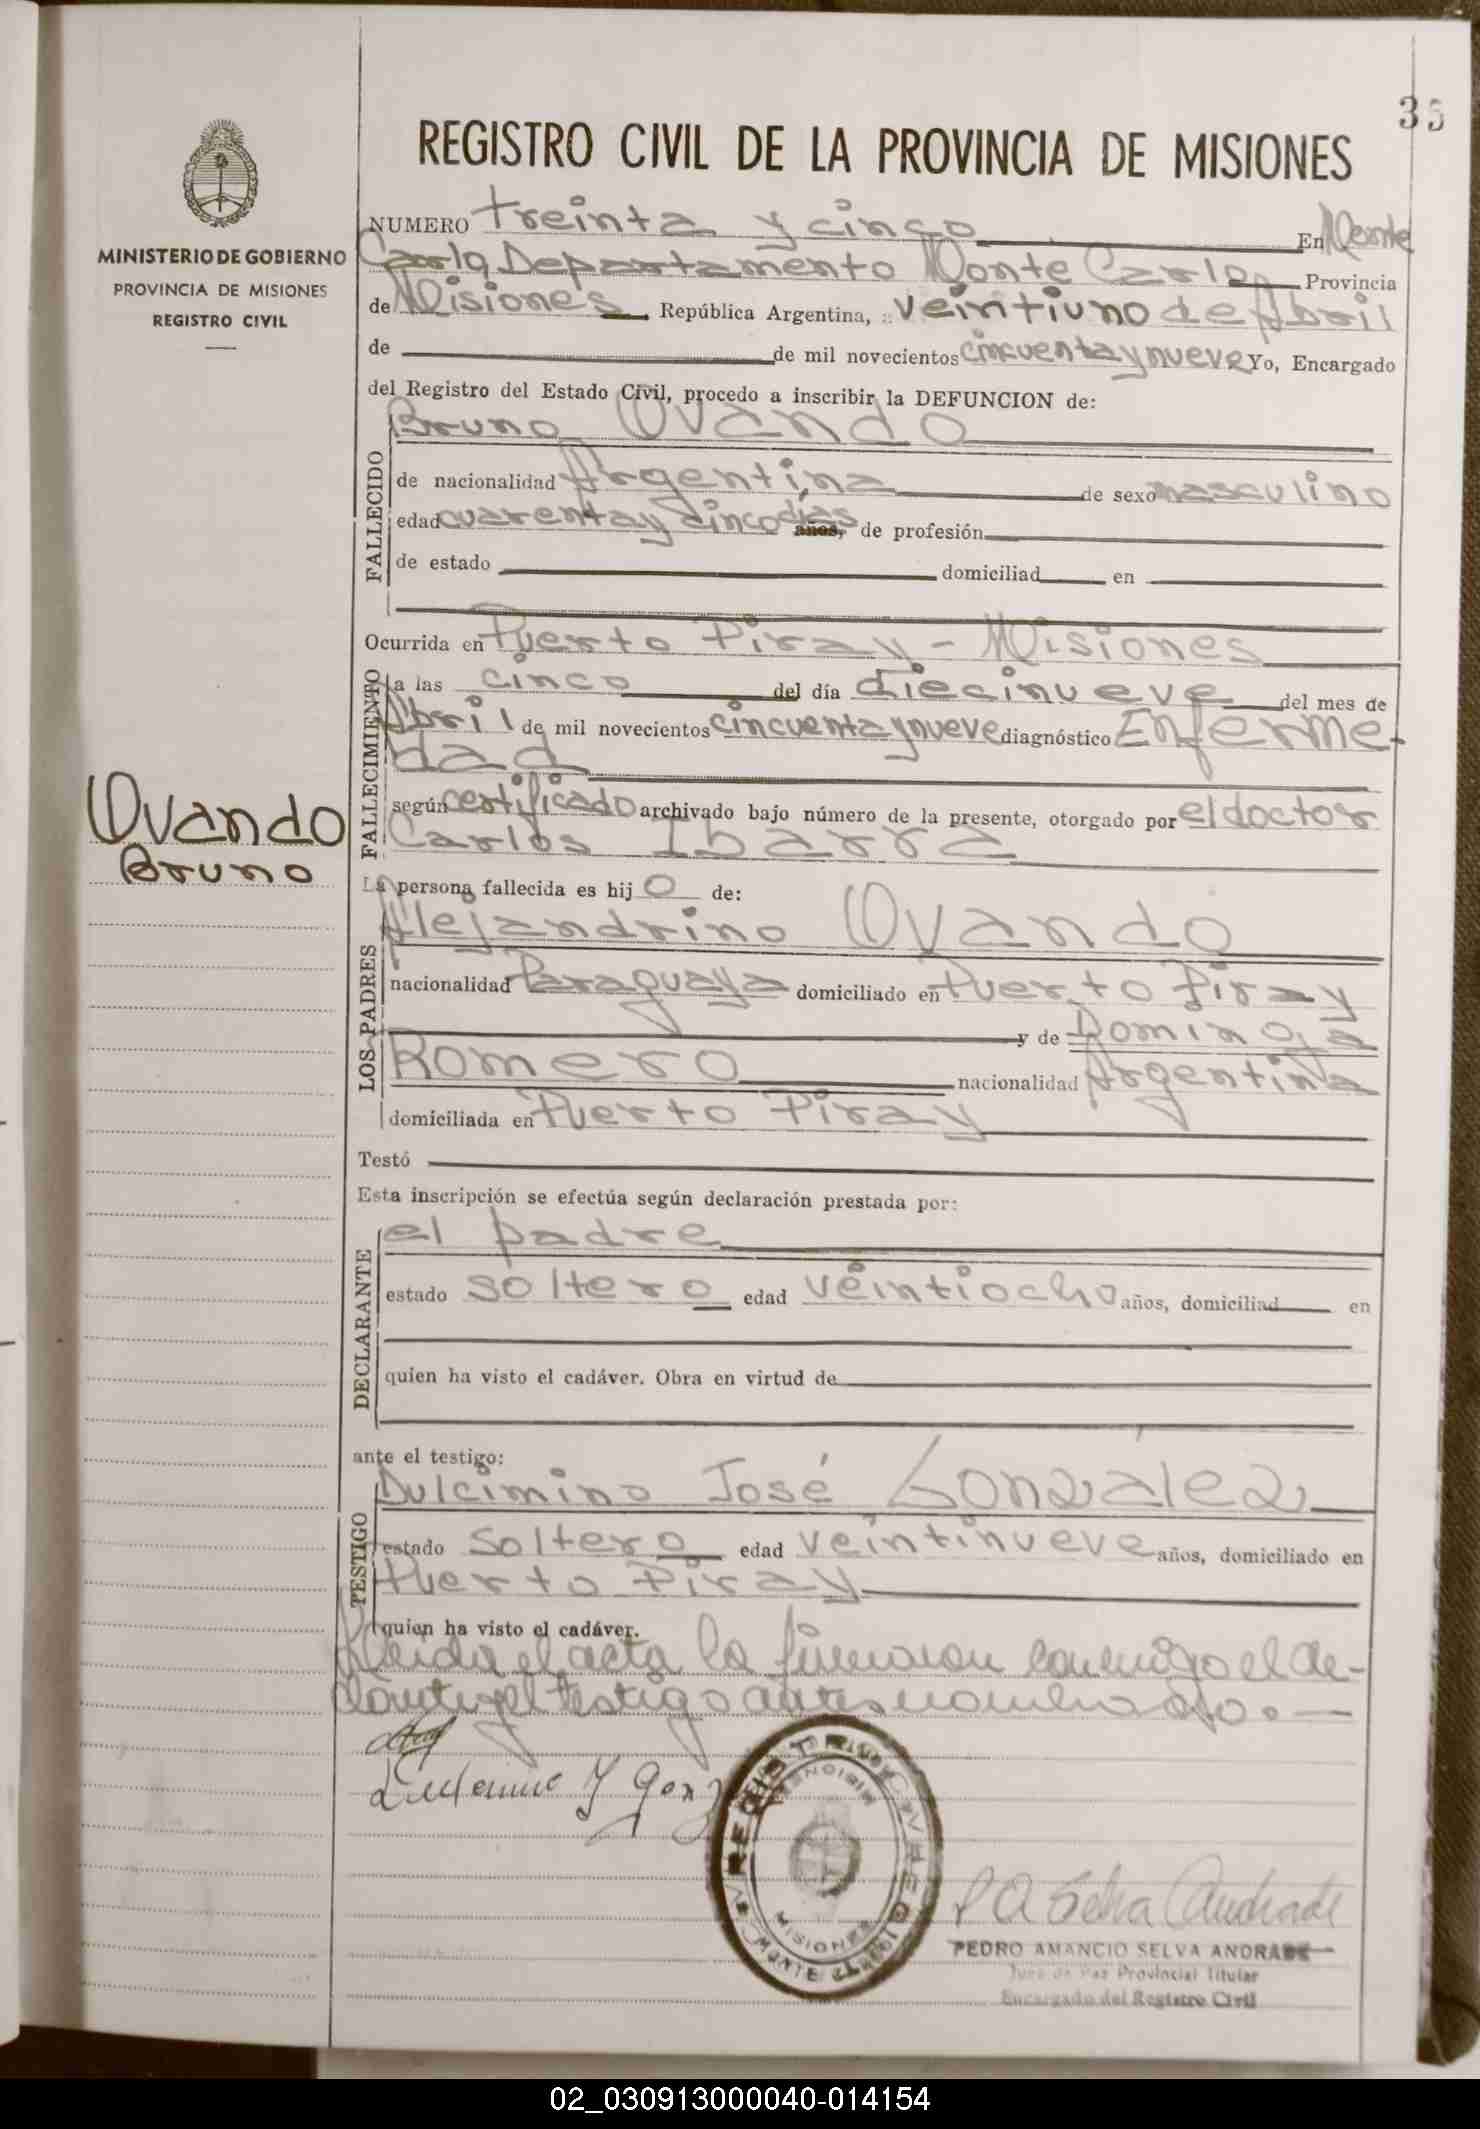 35
REGISTRO CIVIL DE LA PROVINCIA DE MISIONES
MINISTERIO DE GOBIERNO
PROVINCIA DE MISIONES
REGISTRO CIVIL
NUMERO treinta y cinco En Monte
Carlo Departamento Monte Carlo Provincia
de Misiones República Argentina, veintiuno de Abril
de de mil novecientos cincuenta y nueve Yo, Encargado
del Registro del Estado Civil, procedo a inscribir la DEFUNCION de:
FALLECIDO
Bruno Ovando
de nacionalidad Argentina de sexo masculino
edad cuarenta y cinco días años, de profesión
de estado domiciliad en
Ocurrida en Puerto Piray - Misiones
FALLECIMIENTO
a las cinco del día diecinueve del mes de
Abril de mil novecientos cincuenta y nueve diagnóstico Enferme-
dad
Ovando
Bruno
según certificado archivado bajo número de la presente, otorgado por el doctor
Carlos Ibarra
La persona fallecida es hij o de:
LOS PADRES
Alejandrino Ovando
nacionalidad Paraguaya domiciliado en Puerto Piray
y de Dominga
Romero nacionalidad Argentina
domiciliada en Puerto Piray
Testó
Esta inscripción se efectúa según declaración prestada por:
DECLARANTE
el padre
estado soltero edad veintiocho años, domiciliad en
quien ha visto el cadáver. Obra en virtud de
ante el testigo:
TESTIGO
Dulcimino José Gonzalez
estado soltero edad veintinueve años, domiciliado en
Puerto Piray
quien ha visto el cadáver.
Leida el acta la firmaron conmigo el de-
y el testigo antes nombrado.
REGISTRO CIVIL
MISIONES
MONTE CARLO
PEDRO AMANCIO SELVA ANDRADE
Juez de Paz Provincial Titular
Encargado del Registro Civil
02_030913000040-014154